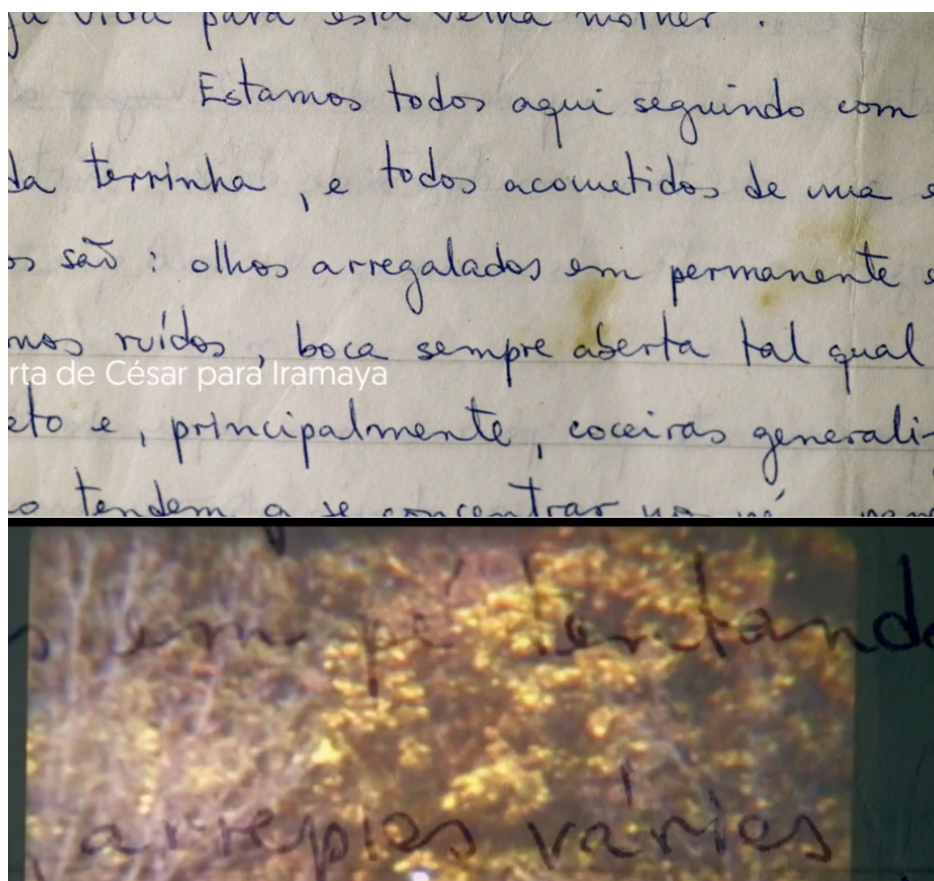 vida para esta velha mulher.
Estamos todos aqui seguindo com
da terrinha, e todos acometidos de uma e
os são: olhos arregalados em permanente e
mos ruídos, boca sempre aberta tal qual
rta de César para Iramaya
eto e, principalmente, coceiras generali-
o tendem a se concentrar no
s em pé tentando
, arrepios vários